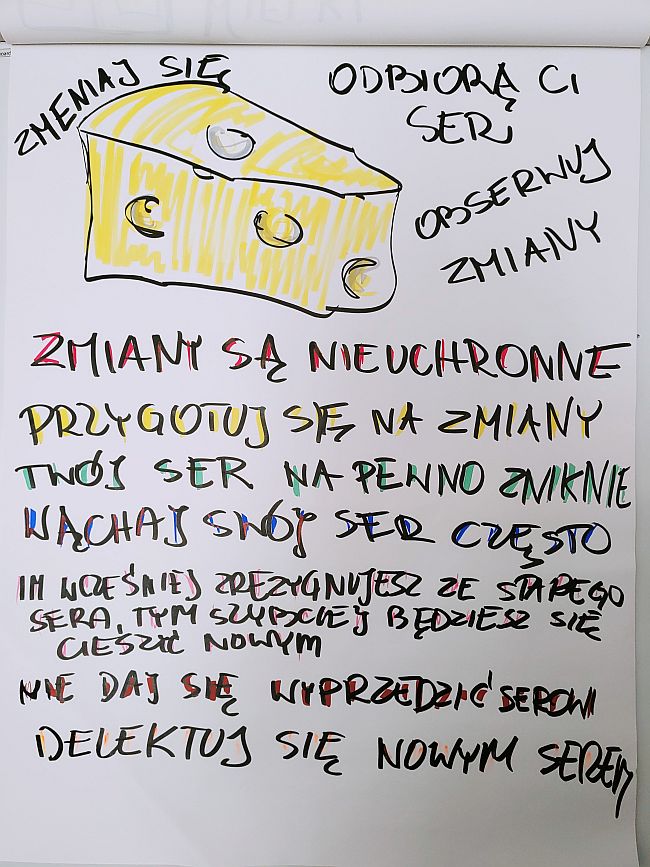 ZMENIAJ SIĘ
ODBIORĄ CI
SER
OBSERWUJ
ZMIANY
ZMIANY SĄ NIEUCHRONNE
PRZYGOTUJ SIĘ NA ZMIANY
TWÓJ SER NA PEWNO ZNIKNIE
WĄCHAJ SWÓJ SER CZĘSTO
IM WCZEŚNIEJ ZREZYGNUJESZ ZE STAREGO
SERA, TYM SZYBCIEJ BĘDZIESZ SIĘ
CIESZYĆ NOWYM
NIE DAJ SIĘ WYPRZEDZIĆ SEROWI
DELEKTUJ SIĘ NOWYM SEREM